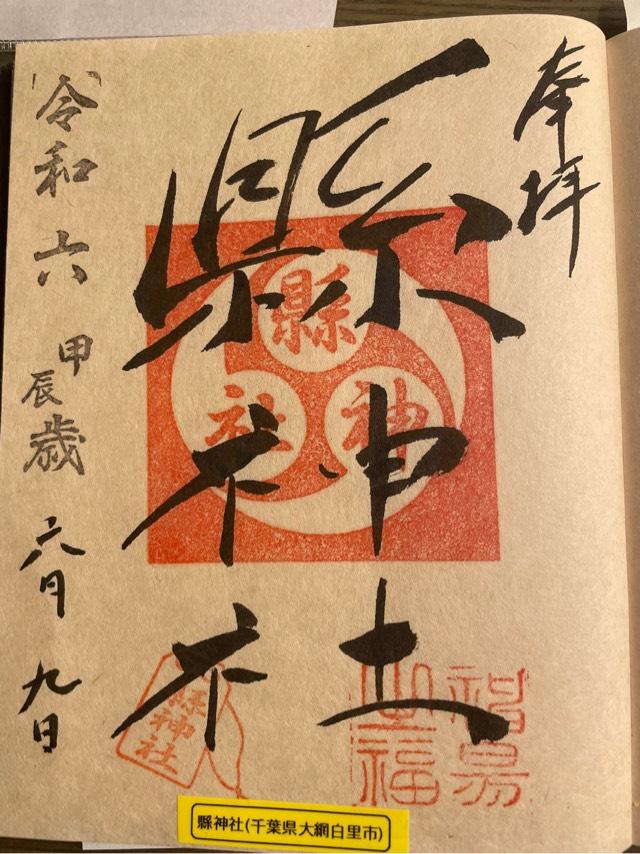 奉拝
縣神社
縣神社
縣神社
令和六甲辰歳 六月九日
縣神社(千葉県大網白里市)